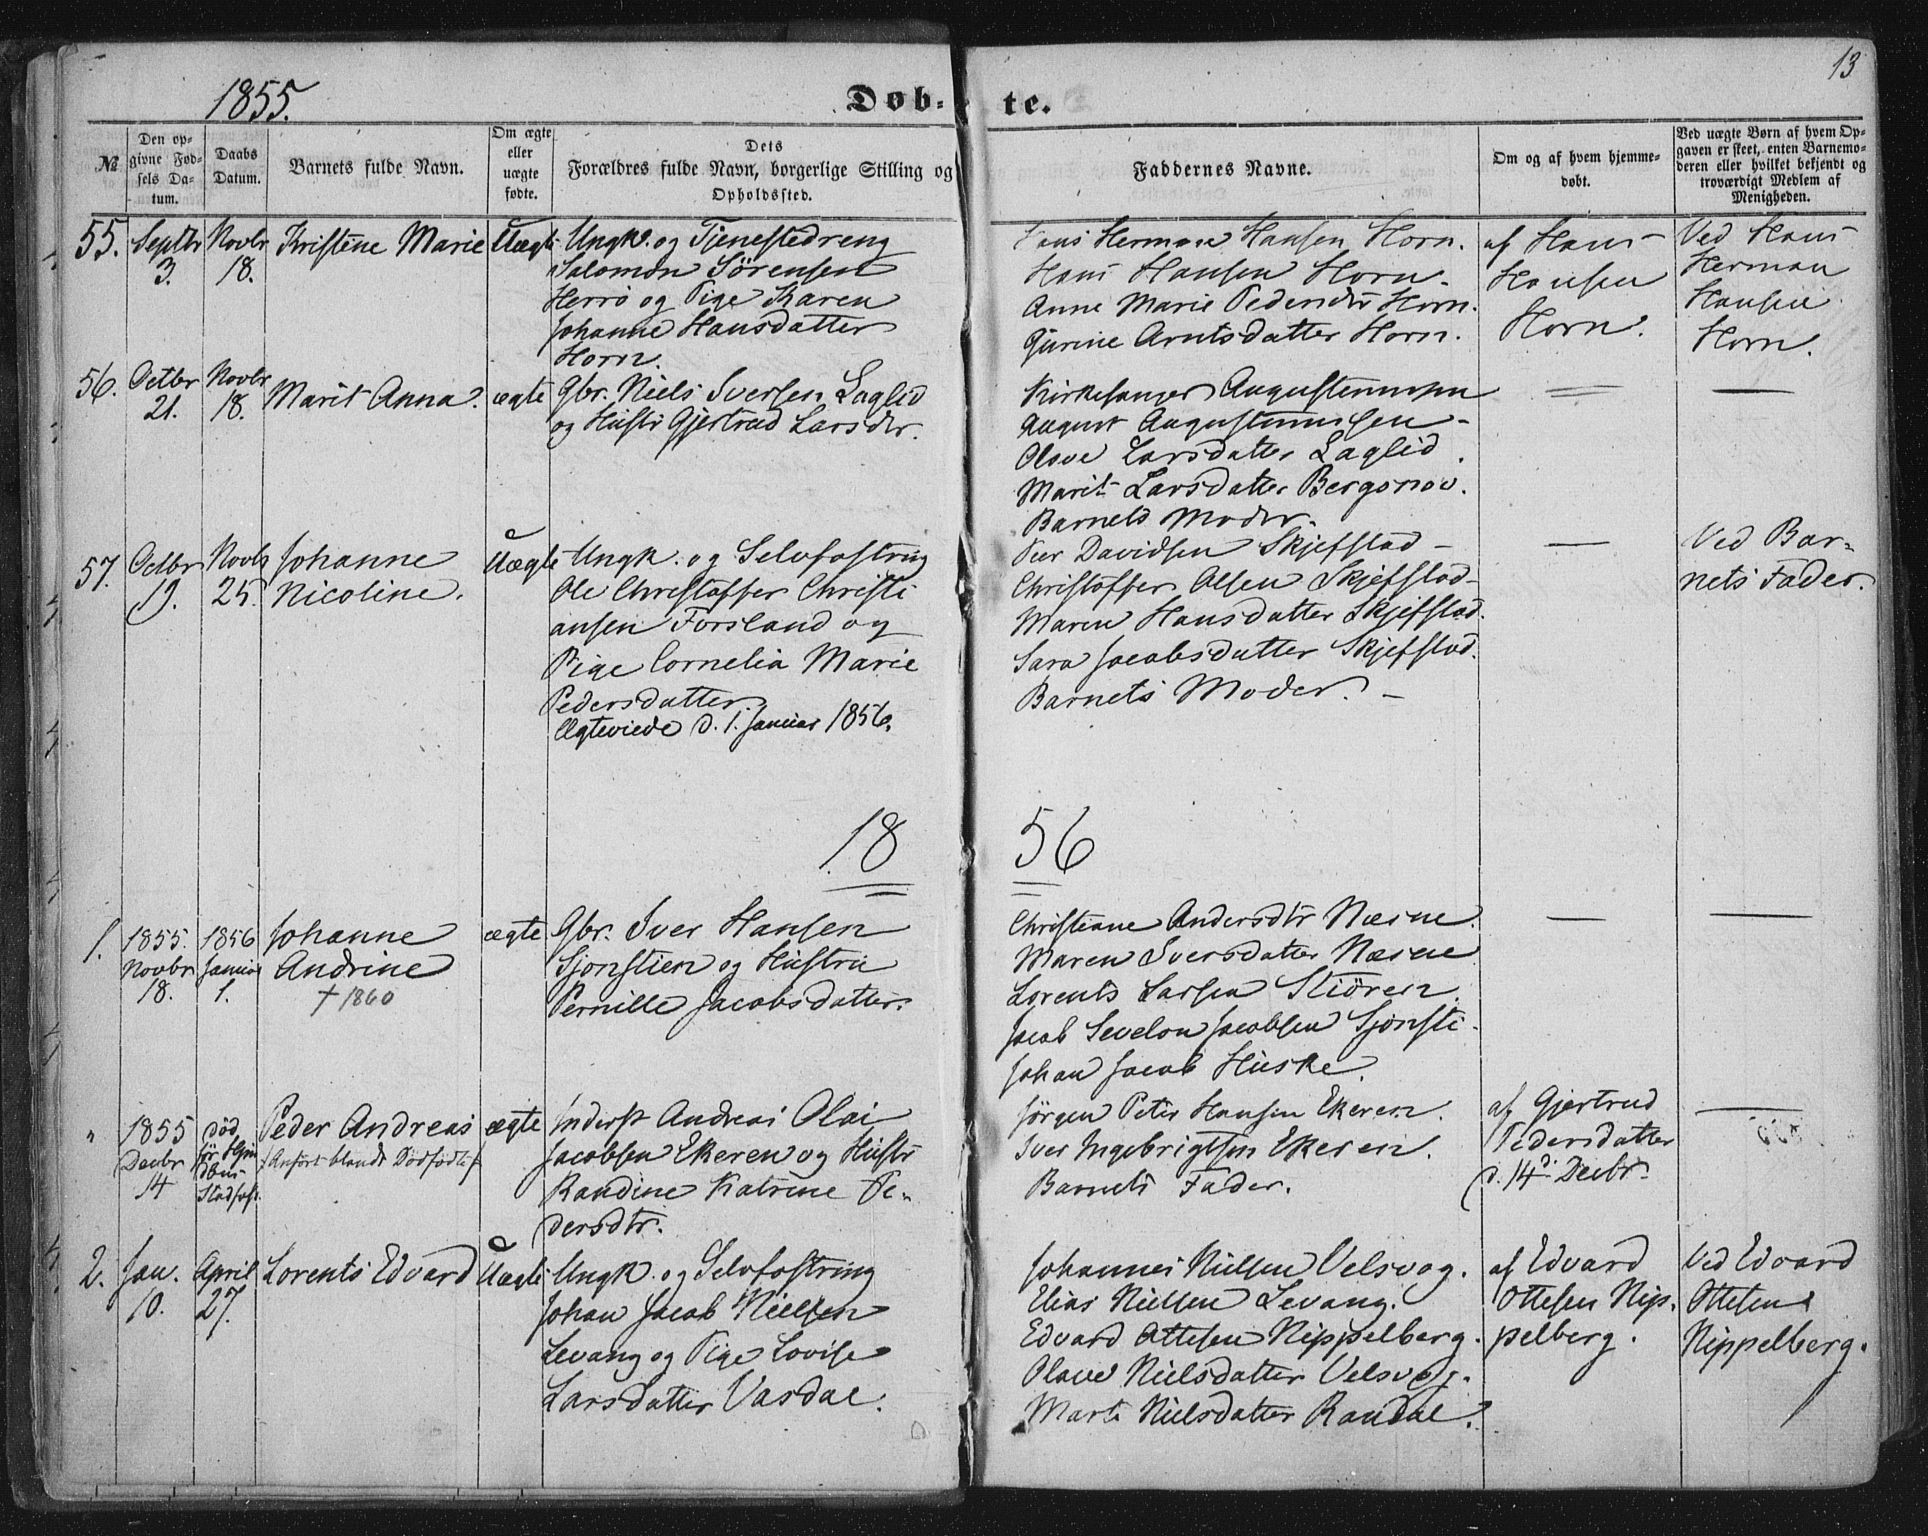 1855.
Døb-
te.
13
№
Den op-
givne Fød-
sels Da-
tum.
Daabs
Datum.
Barnets fulde Navn.
Om ægte
eller
uægte
fødte.
Dets
Forældres fulde Navn, borgerlige Stilling og
Opholdssted.
Faddernes Navne.
Om og af hvem hjemme-
døbt.
Ved uægte Børn af hvem Op-
gaven er skeet, enten Barnemo-
deren eller hvilket bekjendt og
troværdigt Medlem af
Menigheden.
55.
Septbr
3.
Novbr
18.
Kristine Marie
Uægte
Ungk. og Tjenestedreng
Salomon Sörensen
Herrö og Pige Karen
Johanne Hansdatter
Horn.
Hans Herman Hansen Horn.
Hans Hansen Horn.
Anne Marie Pedersdtr Horn.
Gurine Arntsdatter Horn.
af Hans
Hansen
Horn.
Ved Hans
Herman
Hansen
Horn.
56.
Octbr
21.
Novbr
18.
Marit Anna.
ægte
Gbr. Niels Iversen Laglid
og Hustr Gjertrud Larsdtr.
Kirkesanger Augustinussen
August Augustinussen
Olava Larsdatter Laglid.
Marit Larsdatter Bergsnov.
Barnets Moder.
57.
Octbr
19.
Novbr
25.
Johanne
Nicoline.
Uægte
Ungk. og Selvfostring
Ole Christoffer Christi
ansen Forsland og
Pige Cornelia Marie
Pedersdatter.
Ægteviede d. 1. Januar 1856.
Peer Davidsen Skjefstad
Christoffer Olsen Skjefstad
Maren Hansdatter Skjefstad.
Sara Jacobsdatter Skjefstad.
Barnets Moder.
Ved Bar-
nets Fader.
18
56
1.
1855.
Novbr
18.
1856
Januar
1.
Johanne
Andrine
† 1860
ægte
Gbr. Iver Hansen
Sjonstien og Hustru
Pernille Jacobsdatter.
Christiane Andersdtr Næsne.
Maren Iversdatter Næsne
Lorents Larsen Stiören.
Jacob Sevelon Jacobsen Sjonsti.
Johan Jacob Huske.
"
1855
Decbr
14
död
för Hjm
döbs
Stadfæst.
Peder Andreas
/: Anfört blandt Dödfödte :/
ægte
Inderst Andreas Olai
Jacobsen Ekeren og Hustr
Randine Katrine Pe-
dersdtr.
Jörgen Peter Hansen Ekeren.
Iver Ingebrigtsen Ekeren.
Barnets Fader.
af Gjertrud
Pedersdatter
d. 14d. Decbr.
2.
Jan.
10.
April
27.
Lorents Edvard
Uægte
Ungk. og Selvfostring
Johan Jacob Nielsen
Levang og Pige Lovise
Larsdatter Vasdal.
Johannes Nielsen Velsvog.
Elias Nielsen Levang.
Edvard Ottesen Nippelberg.
Olave Nielsdatter Velsvog.
Marte Nielsdatter Randal.
af Edvard
Ottesen Nip-
pelberg.
Ved Edvard
Ottesen
Nippelberg.